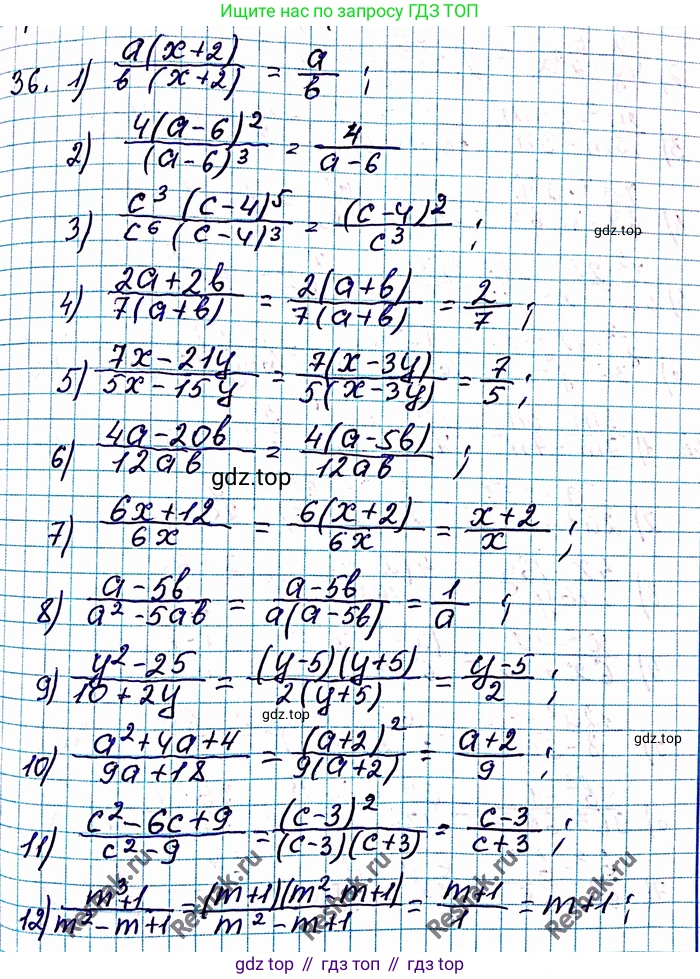 Ищите нас в поиске по запросу ГДЗ ТОП
36. 1) a(x+2)/в(x+2) = a/в ;
2) 4(a-6)²/(a-6)³ = 4/a-6
3) c³(c-4)⁵/c⁶(c-4)³ = (c-4)²/c³ ;
gdz.top
4) 2a+2в/7(a+в) = 2(a+в)/7(a+в) = 2/7 ;
5) 7x-21y/5x-15y = 7(x-3y)/5(x-3y) = 7/5 ;
6) 4a-20в/12aв = 4(a-5в)/12aв ;
gdz.top
7) 6x+12/6x = 6(x+2)/6x = x+2/x ;
8) a-5в/a²-5aв = a-5в/a(a-5в) = 1/a ;
9) y²-25/10+2y = (y-5)(y+5)/2(y+5) = y-5/2 ;
gdz.top
10) a²+4a+4/9a+18 = (a+2)²/9(a+2) = a+2/9 ;
gdz.top
11) c²-6c+9/c²-9 = (c-3)²/(c-3)(c+3) = c-3/c+3 ;
12) m³+1/m²-m+1 = (m+1)(m²-m+1)/m²-m+1 = m+1/1 = m+1 ;
Reshak.ru
Reshak.ru
Reshak.ru
Reshak.ru
gdz.top // гдз.топ // gdz.top // гдз.топ